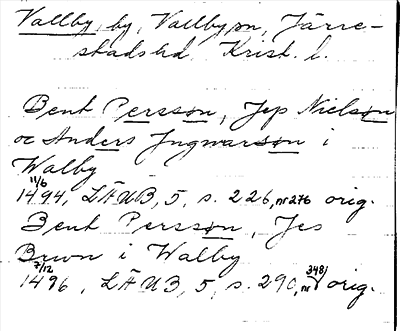 Vallby by, Vallby sn, Järre-
stads hd Krist. l.
Bent Persson, Jep Nielson
oc Anders Jngwarson i
Walby
11/6
1494, LÄUB, 5, s. 226, nr 276 orig.
Bent Persson, Jes
Brwn i Walby
7/12
1496, LÄUB, 5, s. 290, nr 348, orig.